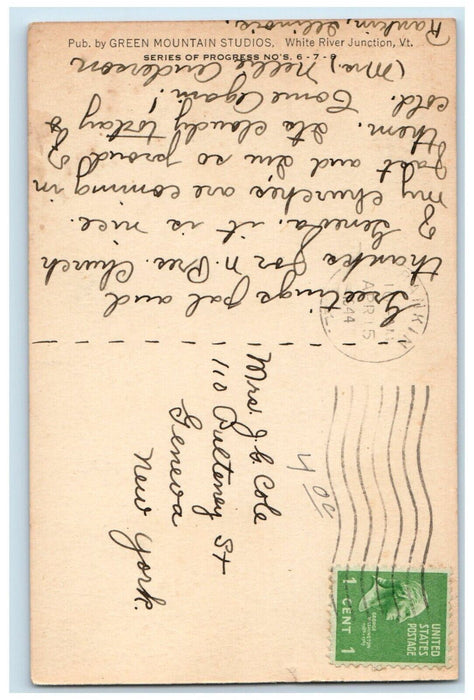 Pub. by GREEN MOUNTAIN STUDIOS, White River Junction, Vt.
SERIES OF PROGRESS NO'S. 6 - 7 - 8
Greetings pal and
thanks for N. Pres. Church
of Geneva. it is nice.
my churches are coming in
fast and I'm so proud of
them. Its cloudy today &
cold. Come Again!
(Mrs.) Nelle Anderson
Rankin, Illinois.
RANKIN
APR 15
1944
ILL.
Mrs. J. C. Cole
110 Pulteney St
Geneva
New York.
4 oc
UNITED
STATES
POSTAGE
GEORGE
WASHINGTON
1 CENT 1